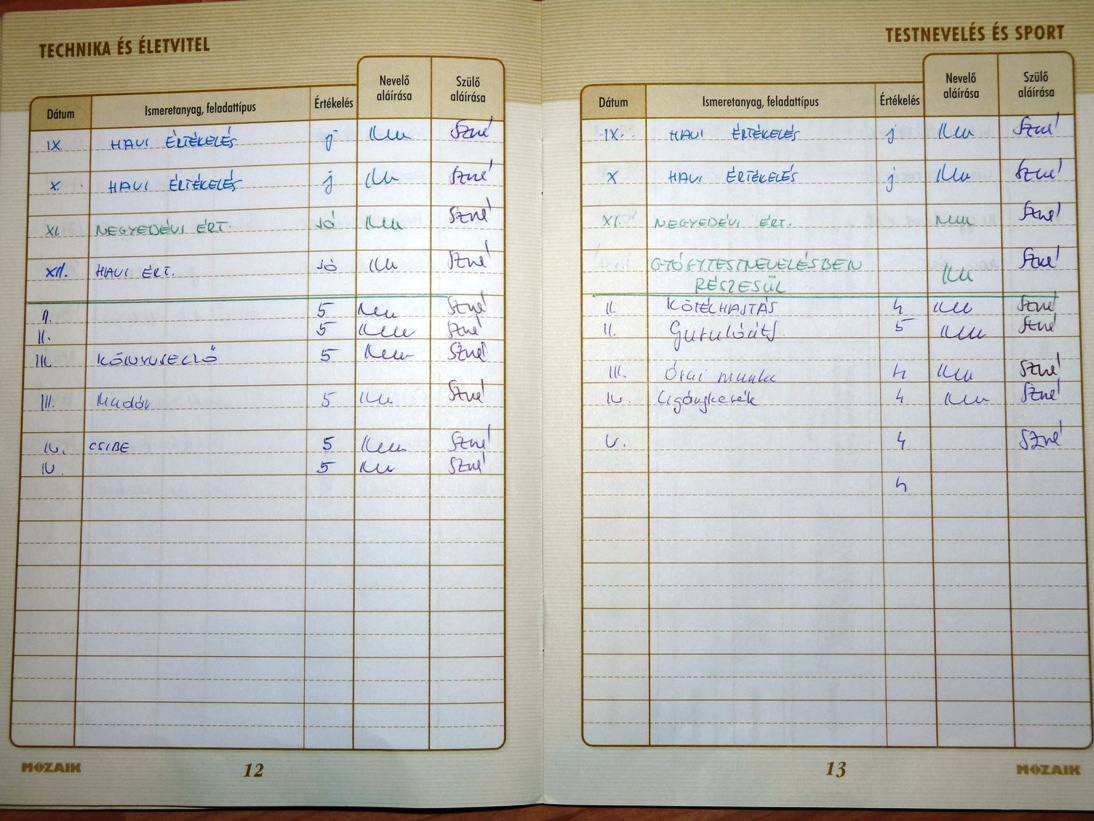 TECHNIKA ÉS ÉLETVITEL
Dátum Ismeretanyag, feladattípus Értékelés Nevelő aláírása Szülő aláírása
IX HAVI ÉRTÉKELÉS j Szné
X HAVI ÉRTÉKELÉS j Szné
XI. NEGYEDÉVI ÉRT. JÓ Szné
XII. HAVI ÉRT. JÓ Szné
II. 5 Szné
II. 5 Szné
III. KÖNYVJELZŐ 5 Szné
III. Madár 5 Szné
IV. CSIBE 5 Szné
IV. 5 Szné
MOZAIK
12
TESTNEVELÉS ÉS SPORT
Dátum Ismeretanyag, feladattípus Értékelés Nevelő aláírása Szülő aláírása
IX. HAVI ÉRTÉKELÉS j Szné
X HAVI ÉRTÉKELÉS j Szné
XI. NEGYEDÉVI ÉRT. Szné
GYÓGYTESTNEVELÉSBEN Szné
RÉSZESÜL
II. KÖTÉLHAJTÁS 4 Szné
II. 5 Szné
III. Órai munka 4 Szné
IV. Cigánykerék 4 Szné
V. 4 Szné
4
13
MOZAIK